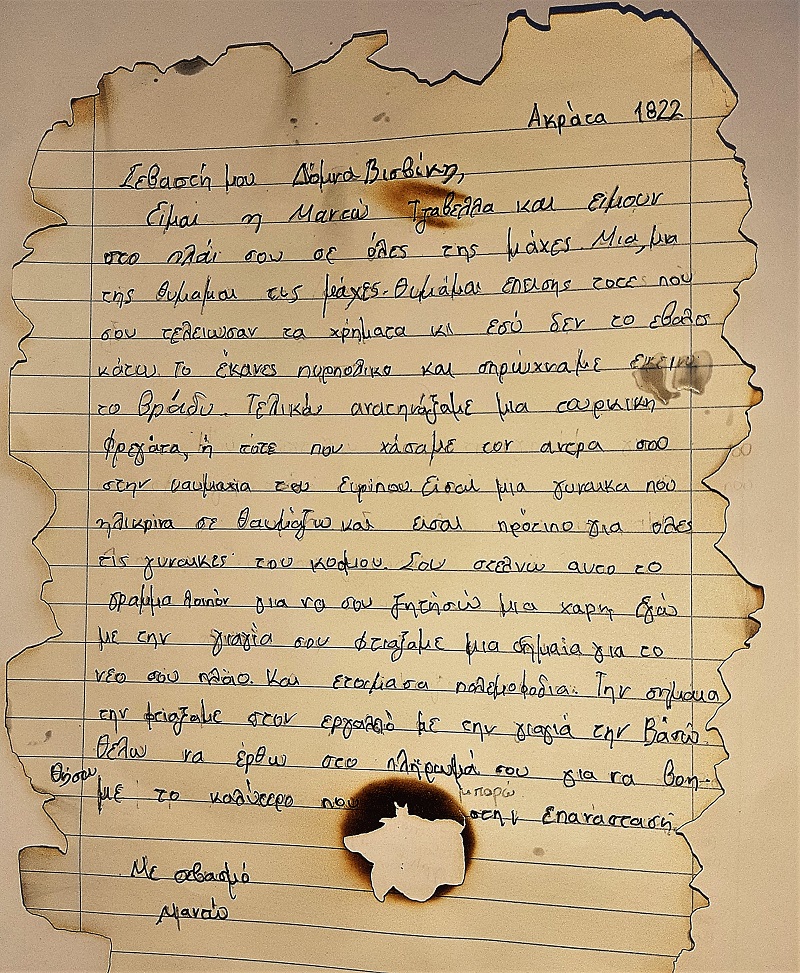 Ακράτα 1822
Σεβαστή μου Δόμνα Βισβίκη,
Είμαι η Μαντώ Τζαβέλλα και ειμουν
στο πλάι σου σε όλες της μάχες. Μια, μια
τής θυμαμαι τις μάχες. Θυμάμαι επεισης τοτε που
σου τελειωσαν τα χρήματα κι εσύ δεν το εβαλες
κάτω. Το έκανες πυρπολικο και σπρώχναμε εκεινο
το βράδυ. Τελικά ανατηνάξαμε μια τουρκικη
φρεγάτα, ή τότε που χάσαμε τον αντρα σου
στην ναυμαχια του Ευριπου. Είσαι μια γυναικα που
ηλικρινα σε θαυμάζω και εισαι πρότιπο για ολες
τις γυναικες του κοσμου. Σου στελνω αυτο το
γραμμα λοιπόν για να σου ζητήσω μια χαρη. Εγώ
με την γιαγία σου φτιαξαμε μια σημαία για το
νεο σου πλοίο. Και ετοιμασα πολεμοφοδια. Την σημαια
την φτιαξαμε στον εργαλειό με την γιαγιά την Βάσω.
Θέλω να έρθω στο πλήρωμά σου για να βοη-
θήσω με το καλύτερο που μπορω στην επανάσταση.
Με σεβασμό
Μαντώ